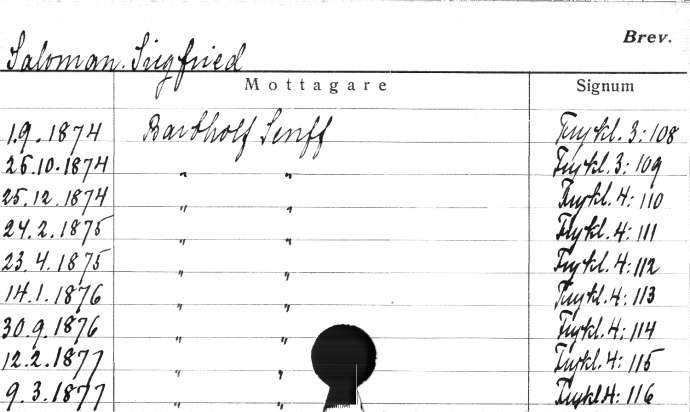 Brev.
Saloman. Siegfried
Mottagare Signum
1.9.1874 Bartholf Senff Frykl. 3:108
25.10.1874 " " Frykl. 3:109
25.12.1874 " " Frykl. 4:110
24.2.1875 " " Frykl. 4:111
23.4.1875 " " Frykl. 4:112
14.1.1876 " " Frykl. 4:113
30.9.1876 " " Frykl. 4:114
12.2.1877 " " Frykl. 4:115
9.3.1877 " " Frykl 4:116